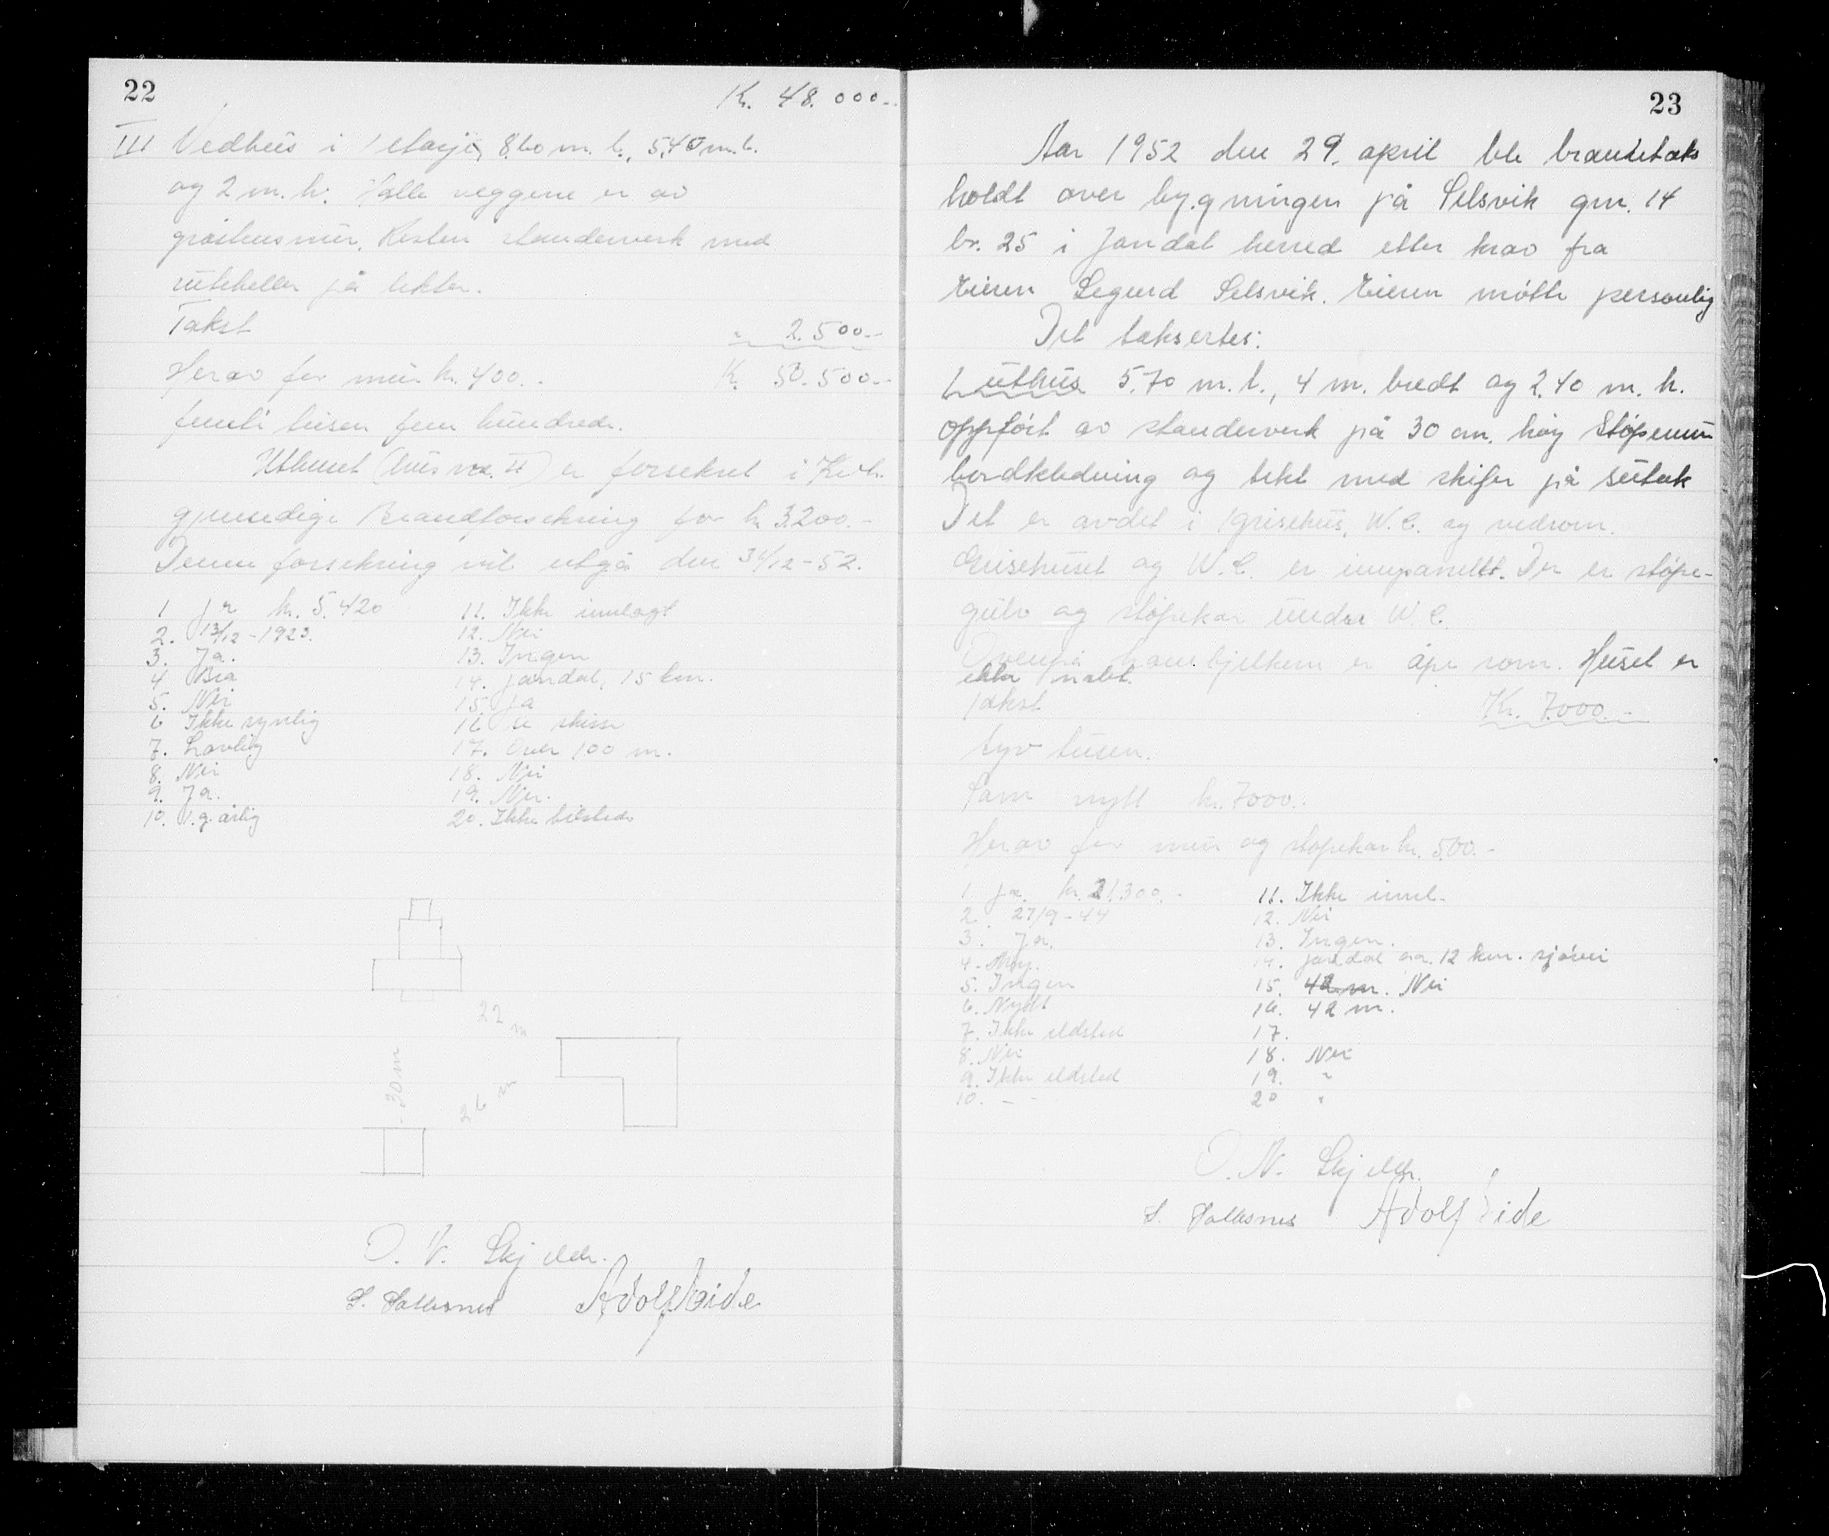 22
Kr. 48.000.-
III Vedhus i 1 etasje, 8.60 m. l., 5,40 m. b.
og 2 m. h. Halle veggene er av
gråsteinsmur. Resten standerverk med
ruteheller på lekter.
Takst " 2.500.-
Herav for mur kr. 400.- Kr. 50.500.-
femti tusen fem hundrede.
Uthuset (hus nr. II) er forsekret i
gjensidige Brandforsekring for kr 3200.-
Denne forsekring vil utgå den 31/12-52.
1 Ja kr. 5.420
2. 13/12-1923.
3. Ja.
4 Bra
5. Nei
6 Ikke synlig
7. Lovlig
8. Nei
9. Ja.
10. 1.g. årlig
11. Ikke innlagt
12. Nei
13. Ingen
14. Jondal, 15 km.
15. Ja
16. Se skisse
17. Over 100 m.
18. Nei
19. Nei.
20. Ikke tilstede
22 m
30 m
26 m
O. N. Skjeldr.
S. Solesnes Adolf Eide
23
Aar 1952 den 29. april ble brandtakst
holdt over bygningen på Selsvik gnr. 14
br. 25 i Jondal herred etter krav fra
Eieren Sigurd Selsvik. Eieren møtte personlig
Det taksertes:
1 uthus 5.70 m. l., 4 m. bredt og 2.40 m. h.
oppført av standerverk på 30 cm. høy støpemur
bordkledning og tekt med skifer på sutak
Det er avdelt i grisehus, W.C. og vedrom.
Grisehuset og W.C. er innpanelt. Der er støpe-
gulv og støpekar under W.C.
Ovenpå er åpe rom. Huset er
ikke malt.
Takst Kr. 7000.-
syv tusen.
Som nytt kr. 7000.-
Herav for mur og støpekar kr. 500.-
1. Ja kr. 21.300.-
2. 27/9-44
3. Ja.
4. Ny.
5. Ingen
6. Nytt
7. Ikke ildsted
8. Nei
9. Ikke ildsted
10. - -
11. Ikke innl.
12. Nei
13. Ingen.
14. Jondal ca. 12 km. sjøvei
15. 42 m. Nei
16. 42 m.
17.
18. Nei
19. "
20 "
O. N. Skjeldr.
S. Solesnes Adolf Eide